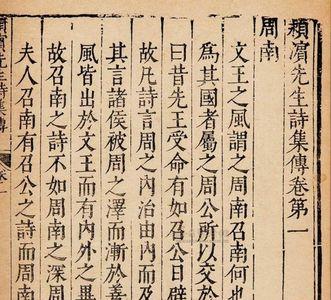 潁濱先生詩集傳卷第一
周南
文王之風謂之周南召南何也
為其國者屬之周公所以交於
曰昔先王受命有如召公日辟
故凡詩言周之內治由內而
其言諸侯被周之澤而漸於善
風皆出於文王而有內外之異
故召南之詩不如周南之深周
夫人召南有召公之詩而周南
潁濱先生詩集傳 卷一